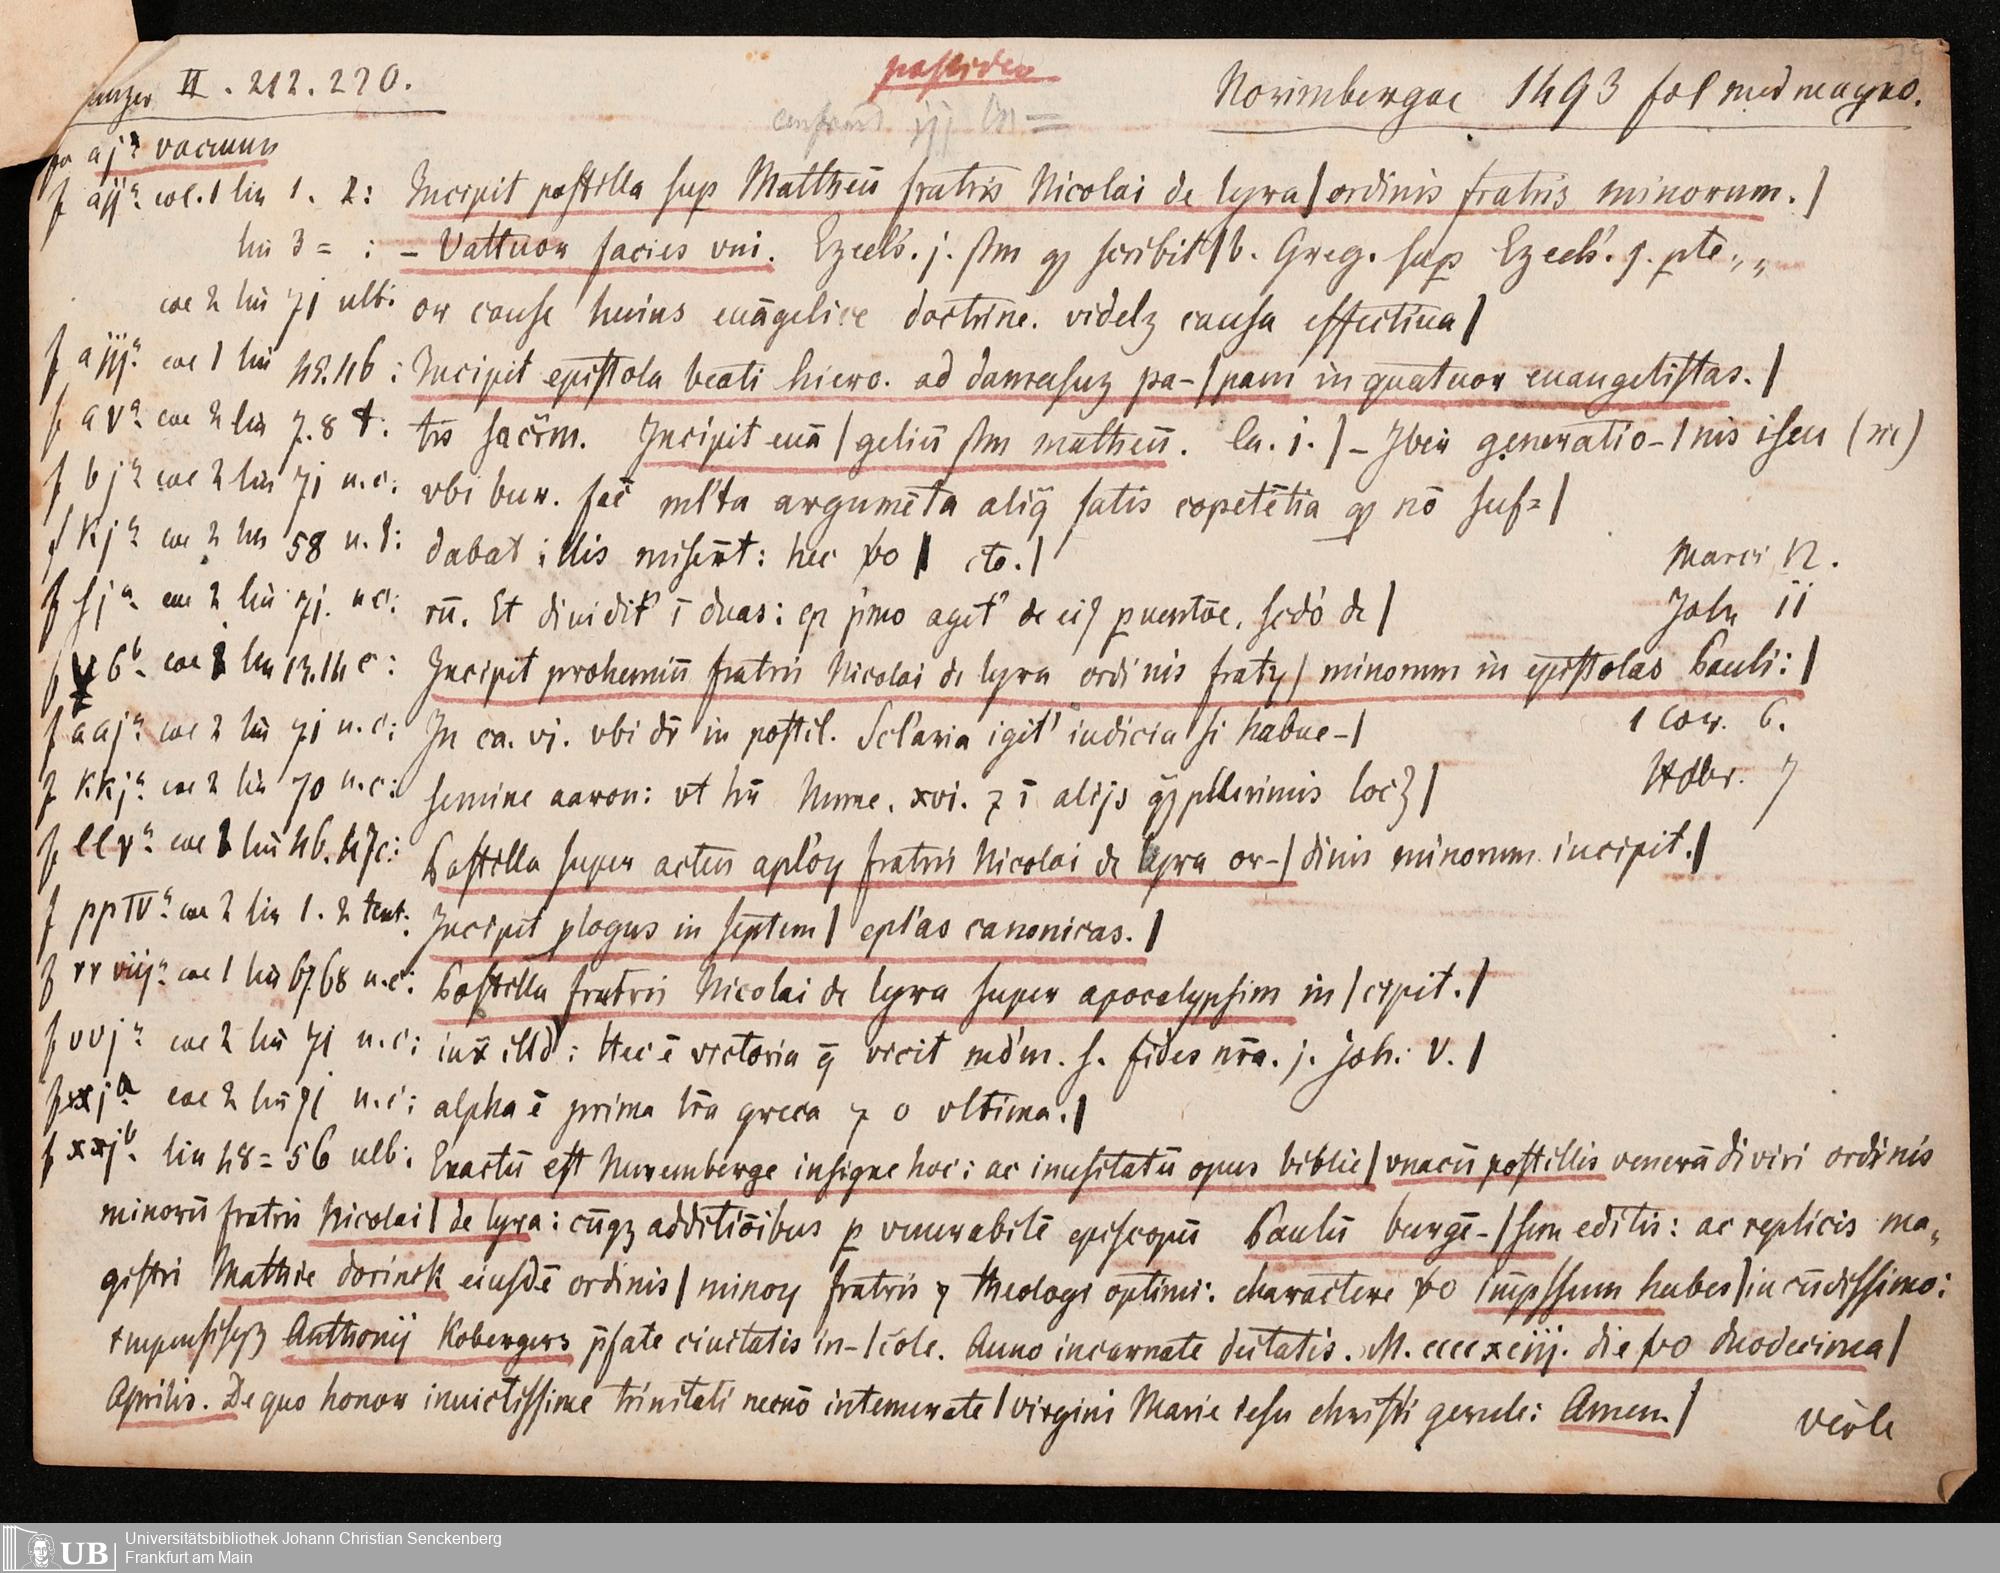 Panzer II. 212. 220.
possideo
Norimbergae 1493 fol med magno.
fo aj a vacuum
f aij a. col. 1 lin 1. 2: Incipit postilla sup Mattheū fratris Nicolai de lyra | ordinis fratris minorum. |
lin 3 = : – Vattuor facies vni. Ezech. j. Fm ꝙ scribit | b. Greg. sup Ezech. j. pte „
col 2 lin 71 ult: or cause huius euāgelice doctrine. videlꝫ causa effectiua |
f aiij a. col 1 lin 45.46 : Incipit epistola beati hiero. ad damasuꝫ pa- | pam in quatuor euangelistas. |
f a v a. col 2 lin 7. 8 t: tris sacrm. Incipit euā | geliū fm matheū. Ca. i. | – Iber generatio- | nis iseu (sic)
f b j a col 2 lin 71 u.c: vbi bur. fac̄ ml'ta argumēta aliq̄ satis copetētia ꝙ nō suf= |
f k j a col 2 lin 58 u. t: dabat illis miserūt: hec vo | cto. | Marci 12.
f s j a. col 2 lin 71. u c: rū. Et diuidit' ī duas: qꝛ p'mo agit' de ei9 puentōe, scd'o de | Joh 11
f y 6 b. col 1 lin 13.14 c: Incipit prohemiū fratris Nicolai de lyra ordinis fratꝝ | minorum in epistolas Pauli: |
f aa j a. col 2 lin 71 u.c: In ca. vj. vbi dr̄ in postil. Sc'laria igit' iudicia si habue- | 1 Cor. 6.
f kk j a. col 2 lin 70 u.c: semine aaron: vt hr̄ Nume. xvi. ⁊ ī alijs qꝫ pluerimis loc | Hebr. 7
f ll v a. col 1 lin 46. 47 c: Postilla super actus apl'oꝝ fratris Nicolai de lyra or- | dinis minorum incipit. |
f pp IV a. col 2 lin 1. 2 text: Incipit plogus in septem | epl'as canonicas. |
f rr viij a. col 1 lin 67.68 u.c: Postilla fratris Nicolai de lyra super apocalypsim in | cipit. |
f vv j a col 2 lin 71 u. c: iux̄ illd: Hec ē victoria q̄ vicit md'm. s. fides nr̄a. j. Joh. V. |
f xx j a. col 2 lin 71 u.c: alpha ē prima lr̄a greca ⁊ o vltima. |
f xx j b. lin 48 = 56 ult: Exactū est Nuremberge insigne hoc: ac inusitatū opus biblie | vnacū postillis venerādi viri ordinis
minorū fratris Nicolai | de lyra: cūqꝫ additiōibus p venerabilē episcopū Paulū burgē- | sem editis: ac replicis ma„
gistri Mathie dorinck eiusdē ordinis | minoꝝ fratris ⁊ theologi optimi: charactere vo imp̄ssum habes | iucūdissimo:
impensisqꝫ Anthonij Kobergers p̄fate ciuitatis in- | cole. Anno incarnate deitatis. M. cccc xciij. die vo duodecima |
Aprilis. De quo honor inuictissime trinitati necnō intemerate | virgini Marie iesu christi gerule: Amen. |